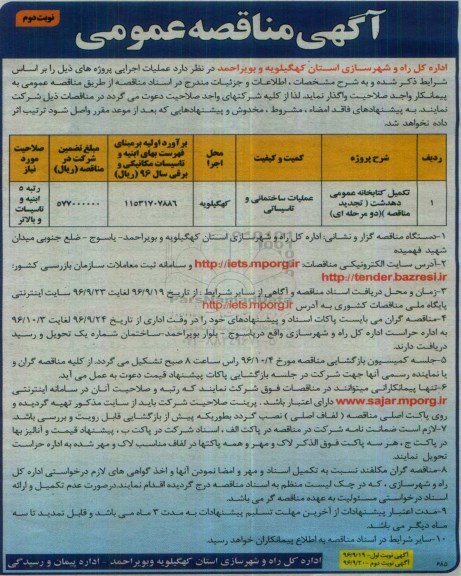 نوبت دوم
آگهی مناقصه عمومی
اداره کل راه و شهرسازی استان کهگیلویه و بویراحمد در نظر دارد عملیات اجرایی پروژه های ذیل را بر اساس
شرایط ذکر شده و به شرح مشخصات ، اطلاعات و جزئیات مندرج در اسناد مناقصه از طریق مناقصه عمومی به
پیمانکار واجد صلاحیت واگذار نماید. لذا از کلیه شرکتهای واجد صلاحیت دعوت می گردد در مناقصات ذیل شرکت
نمایند. به پیشنهادهای فاقد امضاء ، مشروط ، مخدوش و پیشنهادهایی که بعد از موعد مقرر واصل شود ترتیب اثر
داده نخواهد شد.
ردیف شرح پروژه کمیت و کیفیت محل اجرا برآورد اولیه بر مبنای فهرست بهای ابنیه و تاسیسات مکانیکی و برقی سال ۹۶ (ریال) مبلغ تضمین شرکت در مناقصه (ریال) صلاحیت مورد نیاز
۱ تکمیل کتابخانه عمومی دهدشت ( تجدید مناقصه )(دو مرحله ای) عملیات ساختمانی و تاسیساتی کهگیلویه ۱۱۵۳۱۷۰۷۸۸۶ ۵۷۷۰۰۰۰۰۰ رتبه ۵ ابنیه و تاسیسات و بالاتر
۱-دستگاه مناقصه گزار و نشانی: اداره کل راه و شهرسازی استان کهگیلویه و بویراحمد- یاسوج - ضلع جنوبی میدان
شهید فهمیده
۲-آدرس سایت الکترونیکی مناقصات: http://iets.mporg.ir و سامانه ثبت معاملات سازمان بازرسی کشور:
http://tender.bazresi.ir
۳-زمان و محل دریافت اسناد مناقصه و آگاهی از سایر شرایط : از تاریخ ۹۶/۹/۱۹ لغایت ۹۶/۹/۲۳ سایت اینترنتی
پایگاه ملی مناقصات کشوری به آدرس http://iets.mporg.ir
۴-مناقصه گران می بایست پاکات اسناد و پیشنهادهای خود را در وقت اداری از تاریخ ۹۶/۹/۲۴ لغایت ۹۶/۱۰/۳
به اداره حراست اداره کل راه و شهرسازی واقع در یاسوج - بلوار بویراحمد-ساختمان شماره یک تحویل و رسید
دریافت دارند.
۵-جلسه کمیسیون بازگشایی مناقصه مورخ ۹۶/۱۰/۴ راس ساعت ۸ صبح تشکیل می گردد. از کلیه مناقصه گران و
یا نماینده رسمی آنها جهت شرکت در جلسه بازگشایی پاکات پیشنهاد قیمت دعوت به عمل می آید.
۶-تنها پیمانکارانی میتوانند در مناقصات فوق شرکت نمایند که رتبه و صلاحیت آنان در سامانه اینترنتی
www.sajar.mporg.ir دارای اعتبار باشد . پرینت صلاحیت شرکت باید از سایت مذکور تهیه گردیده و
روی پاکت اصلی مناقصه ( لفاف اصلی ) نصب گردد بطوریکه پیش از بازگشایی قابل رویت و بررسی باشد.
۷-لازم است ضمانت نامه شرکت در مناقصه در پاکت الف ، اسناد شرکت در پاکت ب ، پیشنهاد قیمت و آنالیز بها
در پاکت ج ، هر سه پاکت فوق الذکر لاک و مهر و همه پاکتها در لفاف مناسب لاک و مهر شده به اداره حراست
تحویل نمایند.
۸-مناقصه گران مکلفند نسبت به تکمیل اسناد و مهر و امضا نمودن آنها و اخذ گواهی های لازم درخواستی اداره کل
راه و شهرسازی ، که در چک لیست منظم به اسناد مناقصه درج گردیده اقدام نمایند.در صورت عدم تکمیل و ارائه
اسناد درخواستی مسئولیت به عهده مناقصه گر می باشد.
۹-مدت اعتبار پیشنهادات از آخرین مهلت تسلیم پیشنهادات به مدت ۳ ماه می باشد و قابل تمدید تا سه
ماه دیگر می باشد.
۱۰-سایر شرایط در اسناد مناقصه به اطلاع پیمانکاران خواهد رسید.
آگهی نوبت اول-۹۶/۹/۱۹
آگهی نوبت دوم -۹۶/۹/۲۰
اداره کل راه و شهرسازی استان کهگیلویه وبویراحمد - اداره پیمان و رسیدگی
۴۸۵